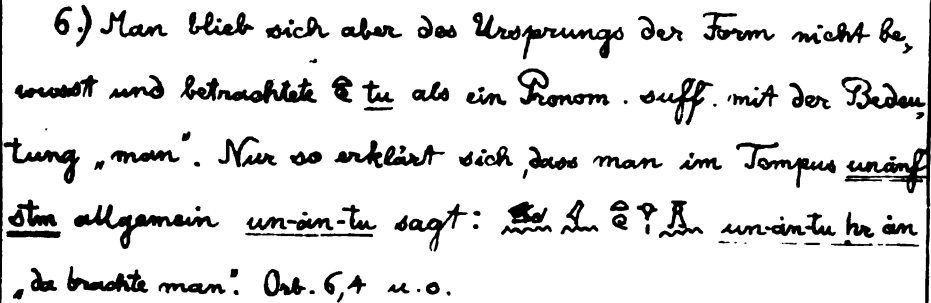 6.) Man blieb sich aber des Ursprungs der Form nicht be,
wusst und betrachtete tu als ein Pronom. suff. mit der Bedeu,
tung „man". Nur so erklärt sich, dass man im Tempus unánf
stm allgemein un-án-tu sagt: un-án-tu ḥr án
„da brachte man". Orb. 6,4 u.o.